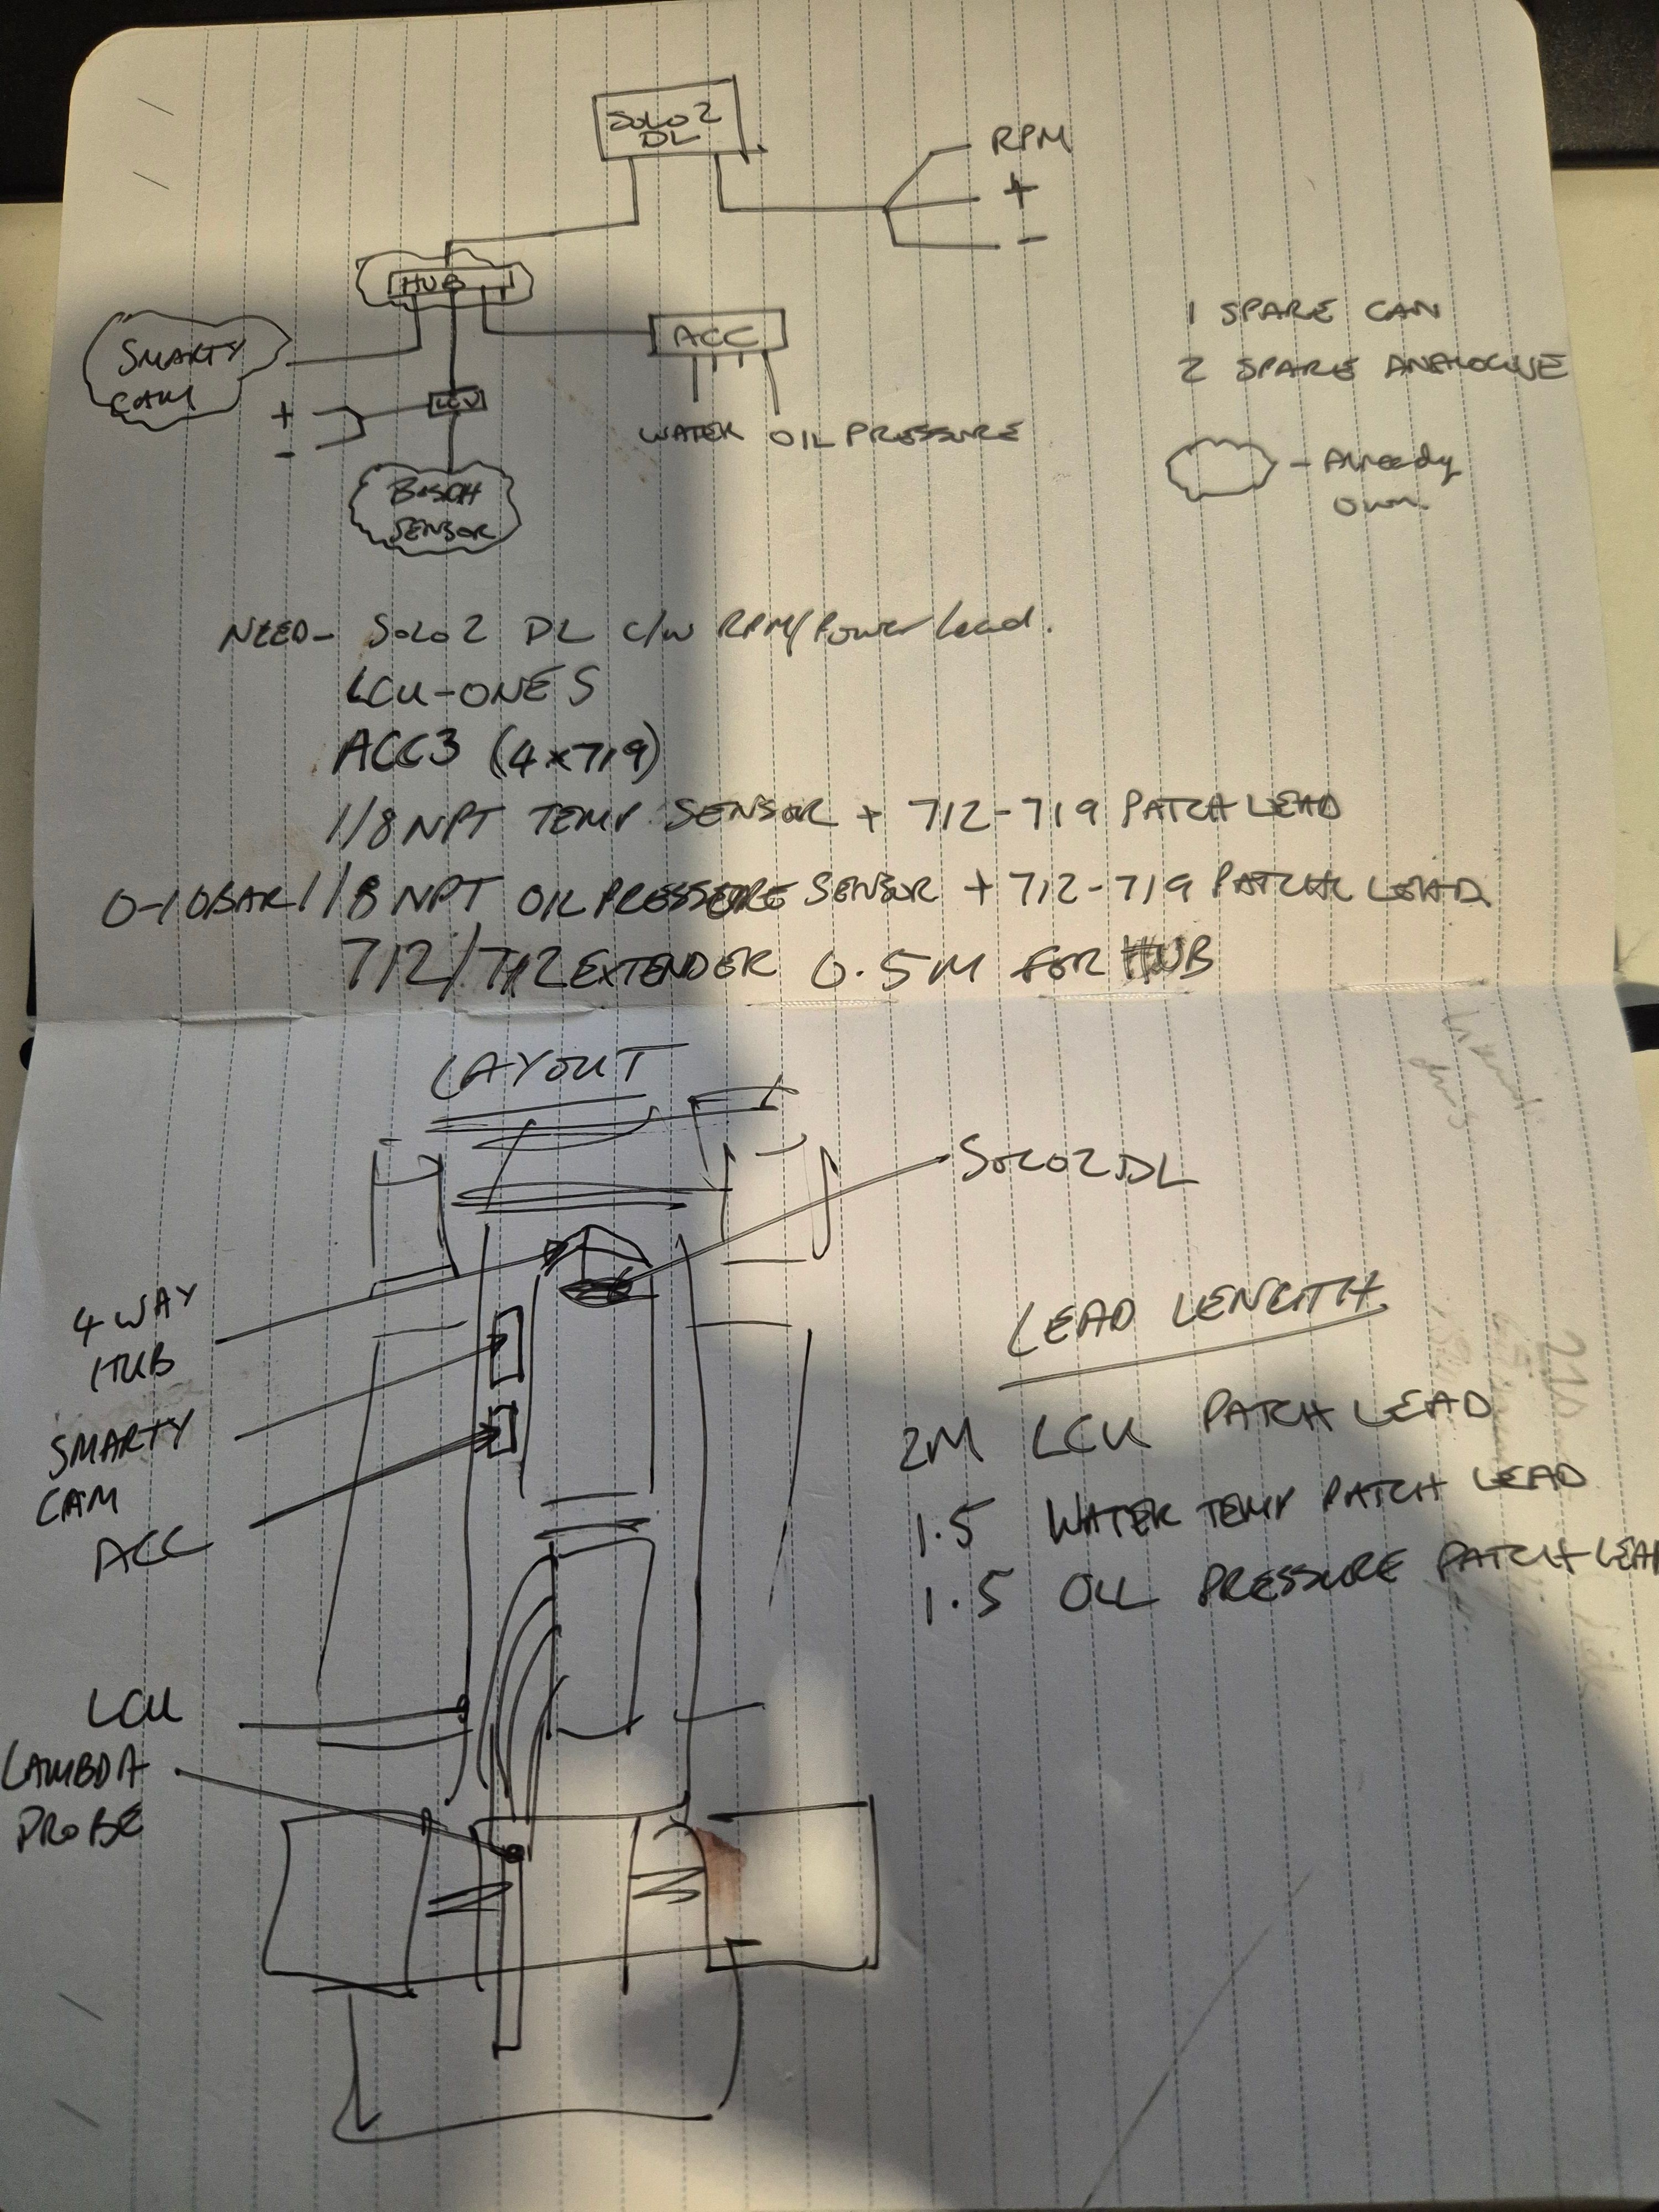 SOLO 2
DL
RPM
+
-
HUB
SMARTY
CAM
ACC
1 SPARE CAN
2 SPARE ANALOGUE
+
-
LCU
WATER OIL PRESSURE
- Already
own
BOSCH
SENSOR
NEED- SOLO 2 DL c/w RPM/Power lead.
LCU-ONE S
ACC3 (4x719)
1/8 NPT TEMP SENSOR + 712-719 PATCH LEAD
0-10BAR 1/8 NPT OIL PRESSURE SENSOR + 712-719 PATCH LEAD
712/712 EXTENDER 0.5M FOR HUB
LAYOUT
SOLO2 DL
4 WAY
HUB
SMARTY
CAM
ACC
LEAD LENGTH
2M LCU PATCH LEAD
1.5 WATER TEMP PATCH LEAD
1.5 OIL PRESSURE PATCH LEAD
LCU
LAMBDA
PROBE